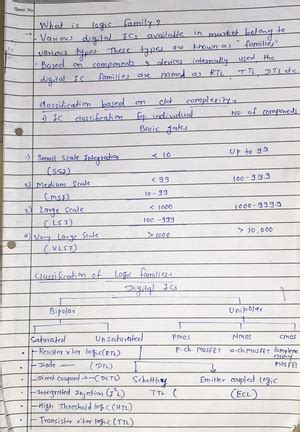 Ques. No.
What is logic family?
• Various digital ICs available in market belong to
various types. These types are known as "families"
• Based on components & devices internally used the
digital IC families are named as RTL, TTL, DTL etc
classification based on ckt complexity
IC classification Eq. individual No of components
Basic gates
1) Small Scale Integration < 10 Up to 99
(SSI)
2) Medium Scale < 99 100-999
(MSI) 10-99
3) Large Scale < 1000 1000-9999
(LSI) 100-999
4) Very Large Scale > 1000 > 10,000
(VLSI)
Classification of Logic families
Digital ICs
Bipolar Unipolar
Saturated Unsaturated PMOS NMOS CMOS
Resistor x'tor logic (RTL) P-ch MOSFET n-ch MOSFET
Diode (DTL) MOSFET
Direct coupled (DCTL) Schottky Emitter coupled logic
Integrated Injection (I²L) TTL (ECL)
High Threshold logic (HTL)
Transistor x'tor logic (TTL)